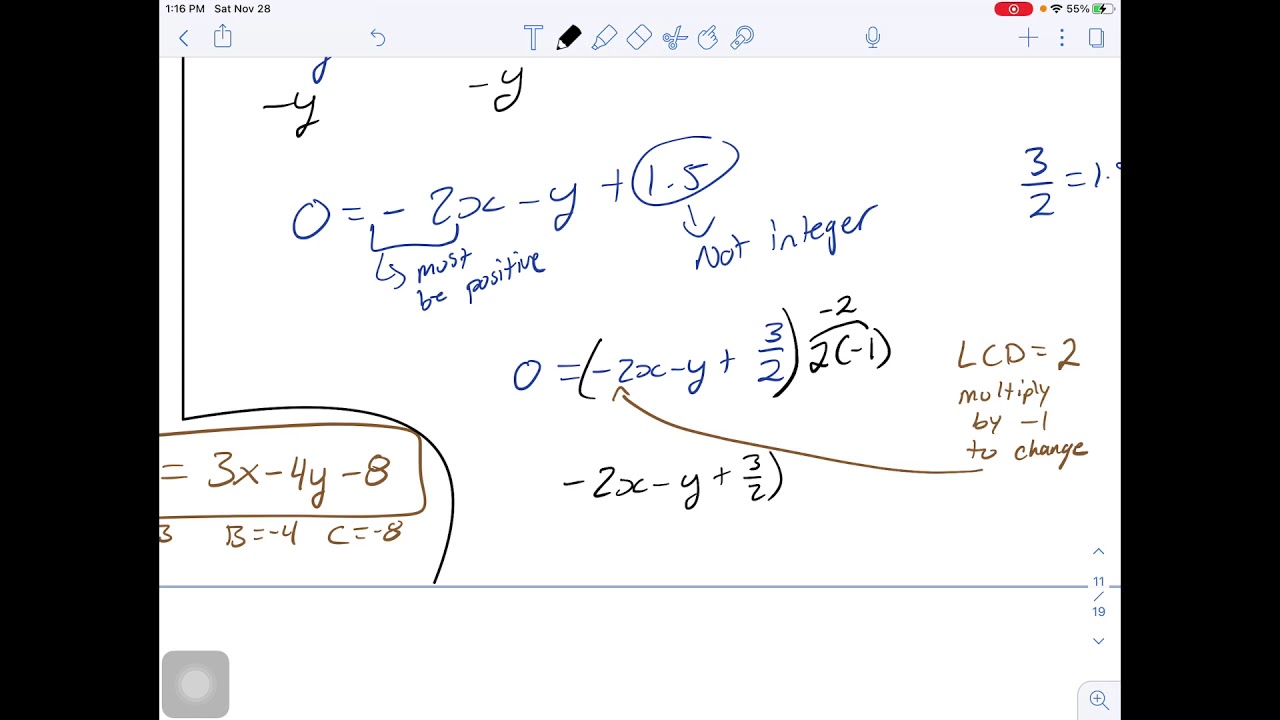 1:16 PM Sat Nov 28
55%
T
y
-y -y
0 = - 2x - y + 1.5
3/2 = 1.
Not integer
must
be positive
-2
0 = (-2x - y + 3/2) 2(-1)
LCD = 2
multiply
by -1
to change
= 3x - 4y - 8
-2x - y + 3/2)
3 B = -4 C = -8
11
/
19